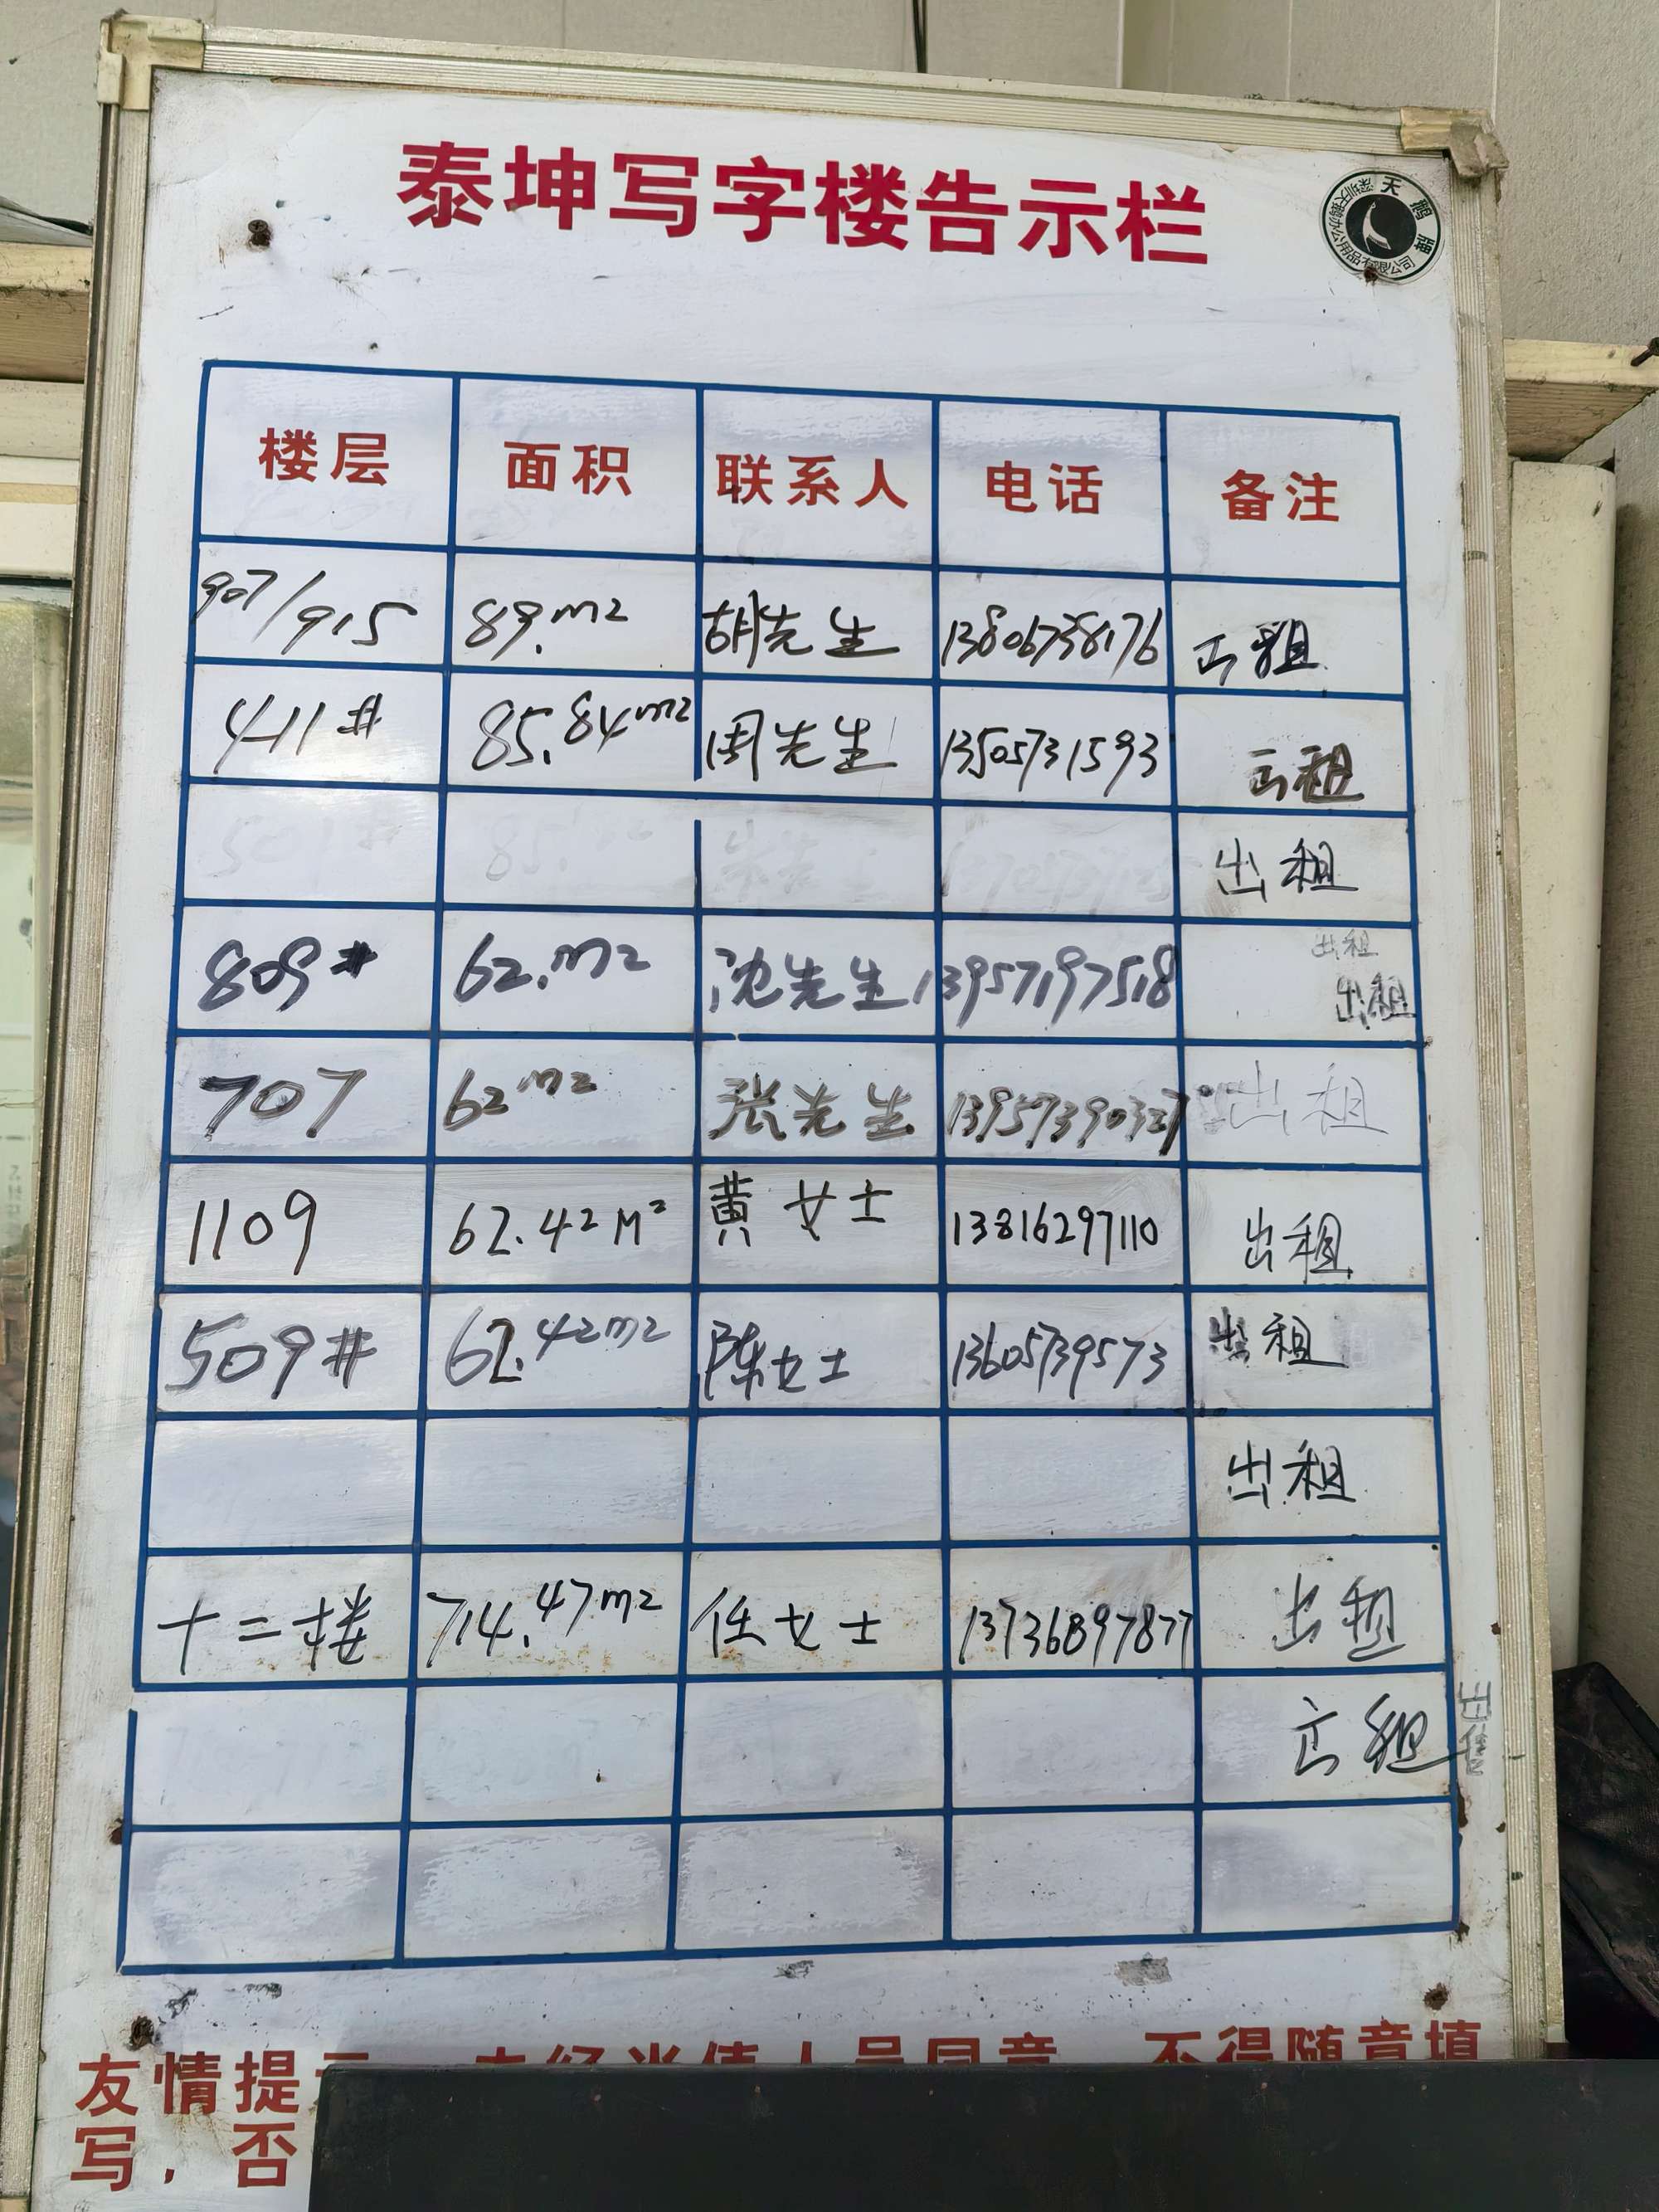 泰坤写字楼告示栏
天鹅牌
深圳天鹅办公用品有限公司
楼层 面积 联系人 电话 备注
907/915 89.m2 胡先生 13806738176 出租
411# 85.84m2 周先生 13505731593 出租
出租
809# 62.m2 沈先生 13957197518 出租
出租
707 62m2 张先生 13957390327 出租
1109 62.42M² 黄女士 13816297110 出租
509# 62.42m2 陈女士 13605739573 出租
出租
十二楼 714.47m2 任女士 13736897877 出租
出租
友情提 不得随意填
写，否